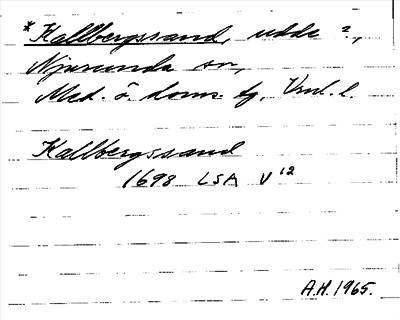 *Kallbergssand, udde ?,
Njurunda sn,
Med. ö. doms. tg, Vnl. l.
Kallbergssand
1698 LSA V 12
A.H. 1965.